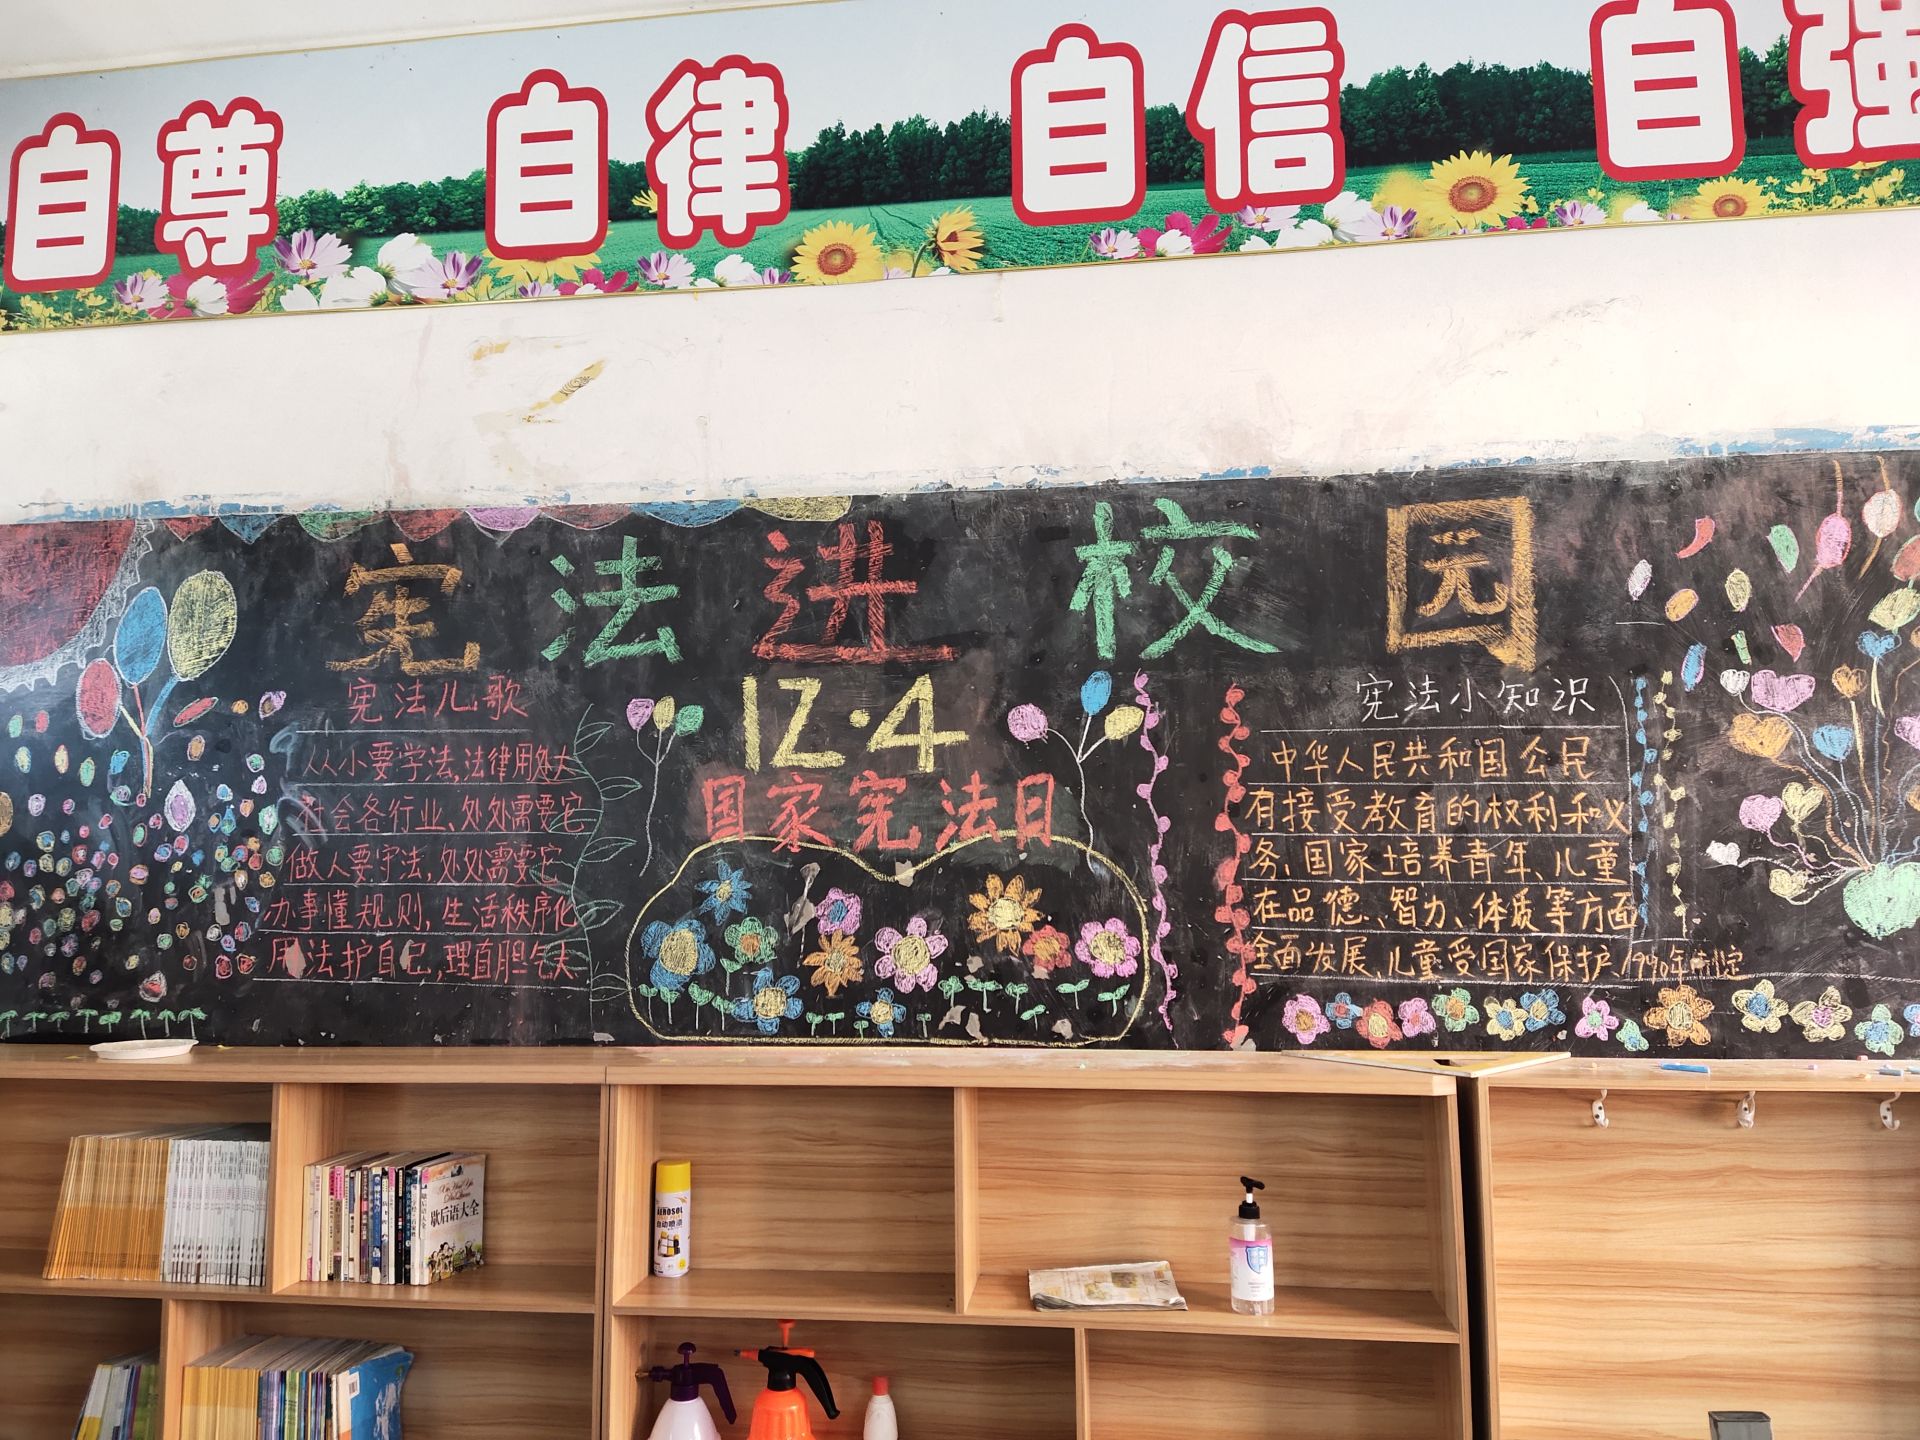 自尊 自律 自信 自强
宪法进校园
宪法儿歌
从小要学法,法律用处大
社会各行业、处处需要它
做人要守法,处处需要它
办事懂规则,生活秩序化
用法护自己,理直胆气大
12·4
国家宪法日
宪法小知识
中华人民共和国公民
有接受教育的权利和义
务、国家培养青年、儿童
在品德、智力、体质等方面
全面发展、儿童受国家保护
歇后语大全
AEROSOL
自动喷漆